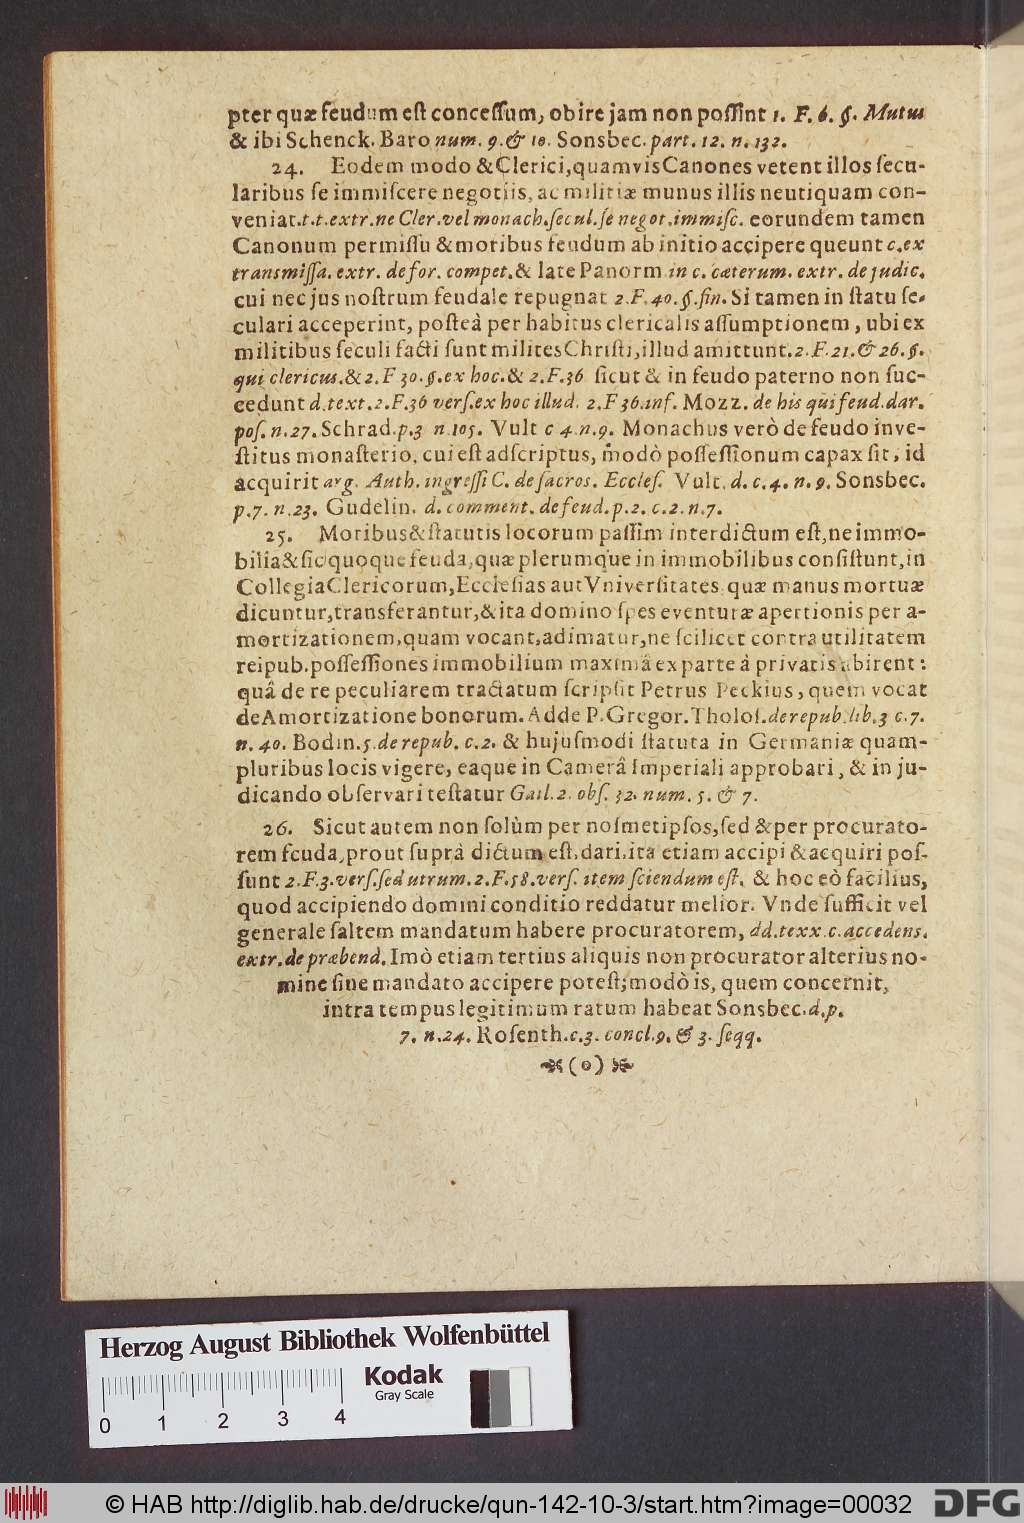 pter quæ feudum eſt conceſſum, obire jam non poſſint 1. F. 6. §. Mutus
& ibi Schenck. Baro num. 9. & 10. Sonsbec. part. 12. n. 132.
24. Eodem modo & Clerici, quamvis Canones vetent illos ſecu-
laribus ſe immiſcere negotiis, ac militiæ munus illis neutiquam con-
veniat. t. t. extr. ne Cler. vel monach. ſecul. ſe negot. immiſc. eorundem tamen
Canonum permiſſu & moribus feudum ab initio accipere queunt c. ex
transmiſſa. extr. de for. compet. & late Panorm. in c. cæterum. extr. de judic.
cui nec jus noſtrum feudale repugnat 2. F. 40. §. fin. Si tamen in ſtatu ſe-
culari acceperint, poſteà per habitus clericalis aſſumptionem, ubi ex
militibus ſeculi facti ſunt milites Chriſti, illud amittunt. 2. F. 21. & 26. §.
qui clericus. & 2. F 30. §. ex hoc. & 2. F. 36 ſicut & in feudo paterno non ſuc-
cedunt d. text. 2. F. 36 verſ. ex hoc illud. 2. F 36. inf. Mozz. de his qui feud. dar.
poſ. n. 27. Schrad. p. 3 n. 105. Vult c 4. n. 9. Monachus verò de feudo inve-
ſtitus monaſterio, cui eſt adſcriptus, modò poſſeſſionum capax ſit, id
acquirit arg. Auth. ingreſſi C. de ſacros. Eccleſ. Vult. d. c. 4. n. 9. Sonsbec.
p. 7. n. 23. Gudelin. d. comment. de feud. p. 2. c. 2. n. 7.
25. Moribus & ſtatutis locorum paſſim interdictum eſt, ne immo-
bilia & ſic quoque feuda, quæ plerumque in immobilibus conſiſtunt, in
Collegia Clericorum, Eccleſias aut Vniverſitates quæ manus mortuæ
dicuntur, transferantur, & ita domino ſpes eventuræ apertionis per a-
mortizationem, quam vocant, adimatur, ne ſcilicet contra utilitatem
reipub. poſſeſſiones immobilium maximâ ex parte à privatis abirent:
quâ de re peculiarem tractatum ſcripſit Petrus Peckius, quem vocat
de Amortizatione bonorum. Adde P. Gregor. Tholoſ. de repub. lib. 3 c. 7.
n. 40. Bodin. 5. de repub. c. 2. & hujuſmodi ſtatuta in Germaniæ quam-
pluribus locis vigere, eaque in Camerâ Imperiali approbari, & in ju-
dicando obſervari teſtatur Gail. 2. obſ. 32. num. 5. & 7.
26. Sicut autem non ſolùm per noſmetipſos, ſed & per procurato-
rem feuda, prout ſuprà dictum eſt, dari, ita etiam accipi & acquiri poſ-
ſunt 2. F. 3. verſ. ſed utrum. 2. F. 58. verſ. item ſciendum eſt. & hoc eò facilius,
quod accipiendo domini conditio reddatur melior. Vnde ſufficit vel
generale ſaltem mandatum habere procuratorem, dd. texx. c. accedens.
extr. de præbend. Imò etiam tertius aliquis non procurator alterius no-
mine ſine mandato accipere poteſt; modò is, quem concernit,
intra tempus legitimum ratum habeat Sonsbec. d. p.
7. n. 24. Roſenth. c. 3. concl. 9. & 3. ſeqq.
Herzog August Bibliothek Wolfenbüttel
Kodak
Gray Scale
0 1 2 3 4
© HAB http://diglib.hab.de/drucke/qun-142-10-3/start.htm?image=00032
DFG